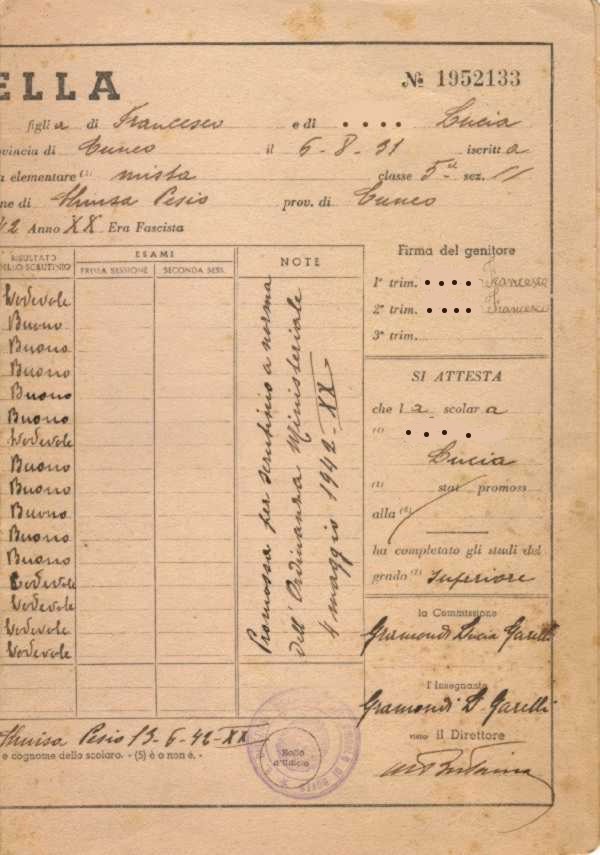 ELLA
№ 1952133
figlia di Francesco e di Lucia
ovincia di Cuneo il 6-8-31 iscritta
a elementare (1) mista classe 5a sez. //
ne di Chiusa Pesio prov. di Cuneo
42 Anno XX Era Fascista
RISULTATO
DELLO SCRUTINIO
ESAMI
PRIMA SESSIONE
SECONDA SESS.
NOTE
Lodevole
Buono
Buono
Buono
Buono
Buono
Lodevole
Buono
Buono
Buono
Buono
Buono
Lodevole
Lodevole
Lodevole
Lodevole
Promossa per scrutinio a norma
dell'Ordinanza Ministeriale
4 maggio 1942-XX
Firma del genitore
1º trim. Francesco
2º trim. Francesco
3º trim.
SI ATTESTA
che la scolara
Lucia
stat promoss
alla
ha completato gli studi del
grado Superiore
la Commissione
Gramondi Lucia Garelli
l'Insegnante
Gramondi L. Garelli
visto il Direttore
Chiusa Pesio 13-6-42-XX
e cognome dello scolaro. - (5) è o non è. -
Bollo
d'Ufficio